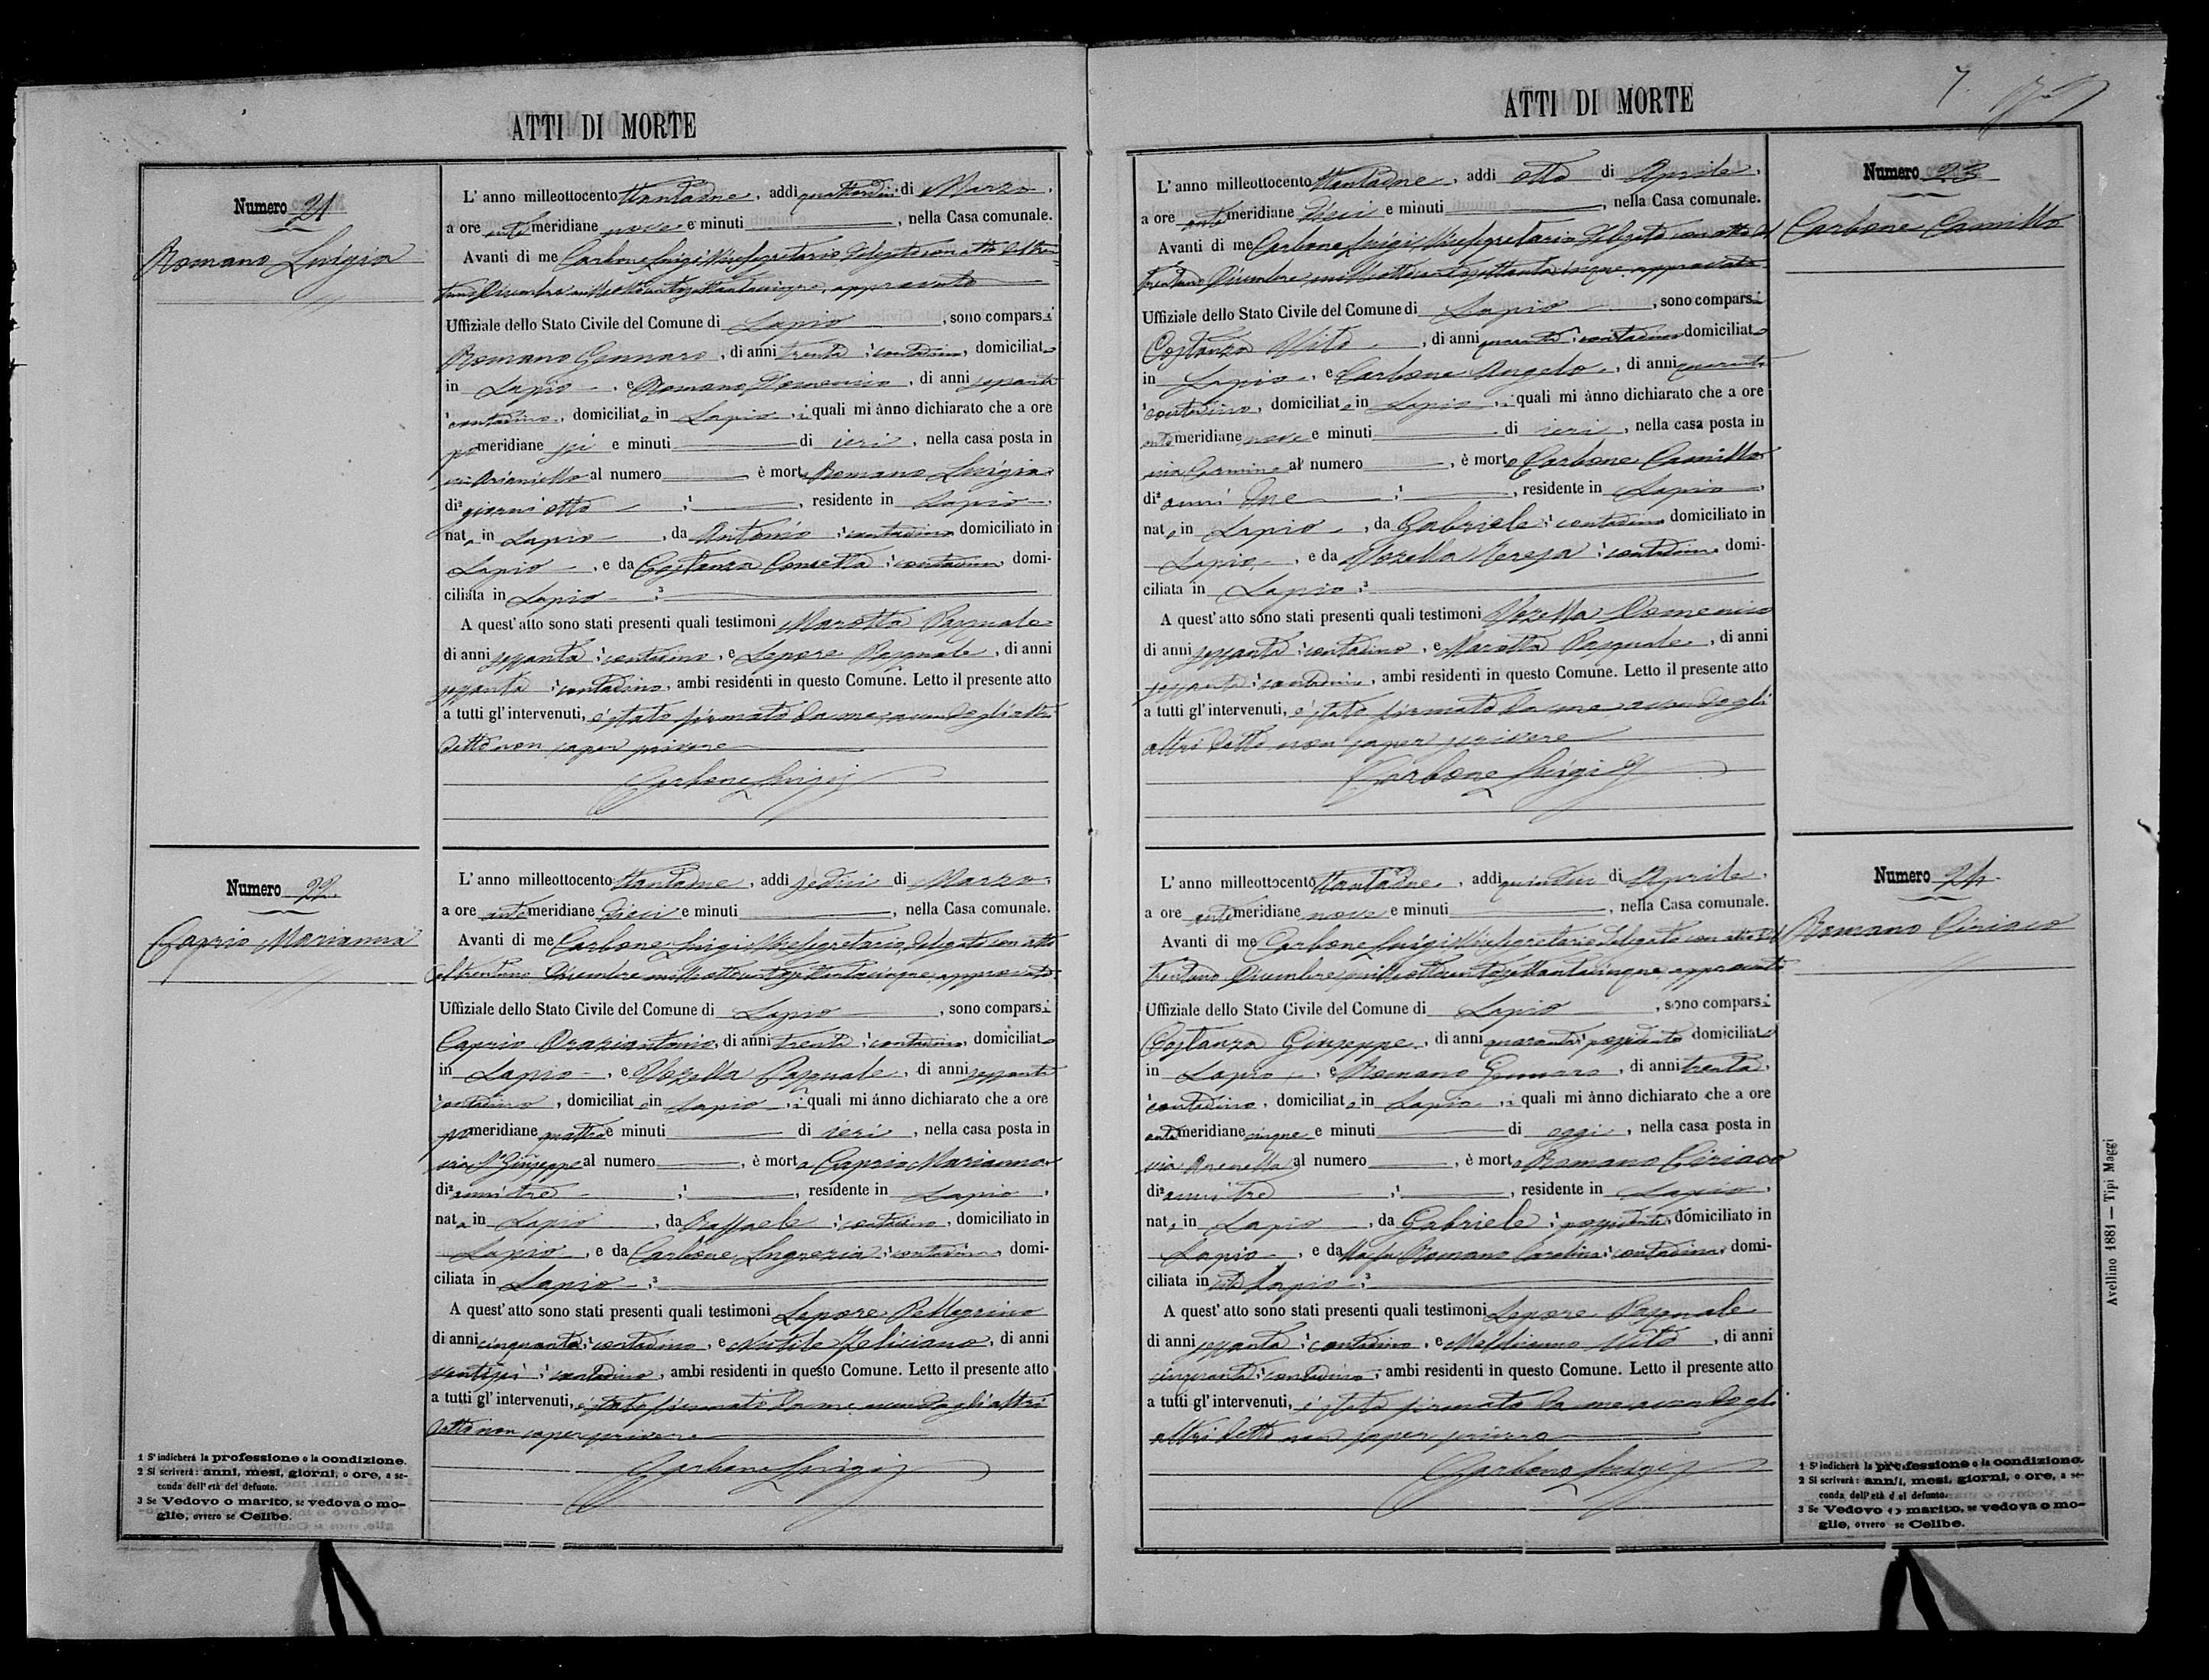 ATTI DI MORTE
Numero 21
Romano Luigia
L' anno milleottocento ttantadue, addì quattordici di Marzo,
a ore antemeridiane nove e minuti, nella Casa comunale.
Avanti di me Carbone Luigi Vicesegretario, delegato con atto del tren-
tuno Dicembre milleottocentosettantacinque, approvato
Uffiziale dello Stato Civile del Comune di Lapio, sono comparsi
Romano Gennaro, di anni trenta ;¹ contadino, domiciliato
in Lapio, e Romano Domenico, di anni sessanta
¹ contadino, domiciliato in Lapio, i quali mi ànno dichiarato che a ore
pomeridiane sei e minuti di ieri, nella casa posta in
via Arianiello al numero è morta Romano Luigia
di² giorni otto ;¹, residente in Lapio,
nata in Lapio, da Antonio ;¹ contadino domiciliato in
Lapio, e da Costanza Concetta ;¹ contadina, domi-
ciliata in Lapio ;³
A quest' atto sono stati presenti quali testimoni Marotta Pasquale
di anni sessanta ;¹ contadino, e Lepore Pasquale, di anni
sessanta ;¹ contadino, ambi residenti in questo Comune. Letto il presente atto
a tutti gl' intervenuti, è stato firmato da me, avendo gli altri
detto non saper scrivere
Carbone Luigi
Numero 22
Caprio Marianna
L' anno milleottocento ttantadue, addì sedici di Marzo,
a ore antemeridiane dieci e minuti, nella Casa comunale.
Avanti di me Carbone Luigi Vicesegretario, delegato con atto
del trentuno Dicembre milleottocentosettantacinque, approvato
Uffiziale dello Stato Civile del Comune di Lapio, sono comparsi
Caprio Oraziantonio, di anni trenta ;¹ contadino, domiciliato
in Lapio, e Vozella Pasquale, di anni sessanta
¹ contadino, domiciliato in Lapio, i quali mi ànno dichiarato che a ore
pomeridiane quattro e minuti di ieri, nella casa posta in
via S. Giuseppe al numero, è morta Caprio Marianna
di² anni tre ;¹, residente in Lapio,
nata in Lapio, da Raffaele ;¹ contadino, domiciliato in
Lapio, e da Carbone Lugrezia ;¹ contadina, domi-
ciliata in Lapio ;³
A quest' atto sono stati presenti quali testimoni Lepore Pellegrino
di anni cinquanta ;¹ contadino, e Nutile Feliciano, di anni
ventisei ;¹ contadino, ambi residenti in questo Comune. Letto il presente atto
a tutti gl' intervenuti, è stato firmato da me avendo gli altri
detto non saper scrivere
Carbone Luigi
1 S' indicherà la professione o la condizione.
2 Si scriverà: anni, mesi, giorni, o ore, a se-
conda dell' età del defunto.
3 Se Vedovo o marito, se vedova o mo-
glie, ovvero se Celibe.
ATTI DI MORTE
7.
Numero 23
Carbone Camillo
L' anno milleottocento ttantadue, addì otto di Aprile,
a ore antemeridiane dieci e minuti, nella Casa comunale.
Avanti di me Carbone Luigi Vicesegretario delegato con atto del
trentuno Dicembre milleottocentosettantacinque approvato
Uffiziale dello Stato Civile del Comune di Lapio, sono comparsi
Costanza Vito, di anni quaranta ;¹ contadino domiciliato
in Lapio, e Carbone Angelo, di anni quaranta
¹ contadino, domiciliato in Lapio, i quali mi ànno dichiarato che a ore
antemeridiane nove e minuti di ieri, nella casa posta in
via Carmine al numero, è morto Carbone Camillo
di² anni due ;¹, residente in Lapio,
nato in Lapio, da Gabriele ;¹ contadino domiciliato in
Lapio, e da Vozella Teresa ;¹ contadina domi-
ciliata in Lapio ;³
A quest' atto sono stati presenti quali testimoni Vozella Domenico
di anni sessanta ;¹ contadino, e Marotta Pasquale, di anni
sessanta ;¹ contadino, ambi residenti in questo Comune. Letto il presente atto
a tutti gl' intervenuti, è stato firmato da me avendo gli
altri detto non saper scrivere
Carbone Luigi
Numero 24
Romano Ciriaco
L' anno milleottocento ttantadue, addì quindici di Aprile,
a ore antemeridiane nove e minuti, nella Casa comunale.
Avanti di me Carbone Luigi Vicesegretario delegato con atto del
trentuno Dicembre milleottocentosettantacinque approvato
Uffiziale dello Stato Civile del Comune di Lapio, sono comparsi
Costanza Giuseppe, di anni quaranta ;¹ possidente domiciliato
in Lapio, e Romano Gennaro, di anni trenta,
¹ contadino, domiciliato in Lapio, i quali mi ànno dichiarato che a ore
antemeridiane cinque e minuti di oggi, nella casa posta in
via al numero, è morto Romano Ciriaco
di² anni tre ;¹, residente in Lapio,
nato in Lapio, da Gabriele ;¹ possidente, domiciliato in
Lapio, e da fu Romano Carolina ;¹ contadina, domi-
ciliata in Lapio ;³
A quest' atto sono stati presenti quali testimoni Lepore Pasquale
di anni sessanta ;¹ contadino, e Vito, di anni
cinquanta ;¹ contadino, ambi residenti in questo Comune. Letto il presente atto
a tutti gl' intervenuti, è stato firmato da me avendo gli
altri detto non saper scrivere
Carbone Luigi
1 S' indicherà la professione o la condizione.
2 Si scriverà: anni, mesi, giorni, o ore, a se-
conda dell' età del defunto.
3 Se Vedovo o marito, se vedova o mo-
glie, ovvero se Celibe.
Avellino 1881 — Tipi Maggi